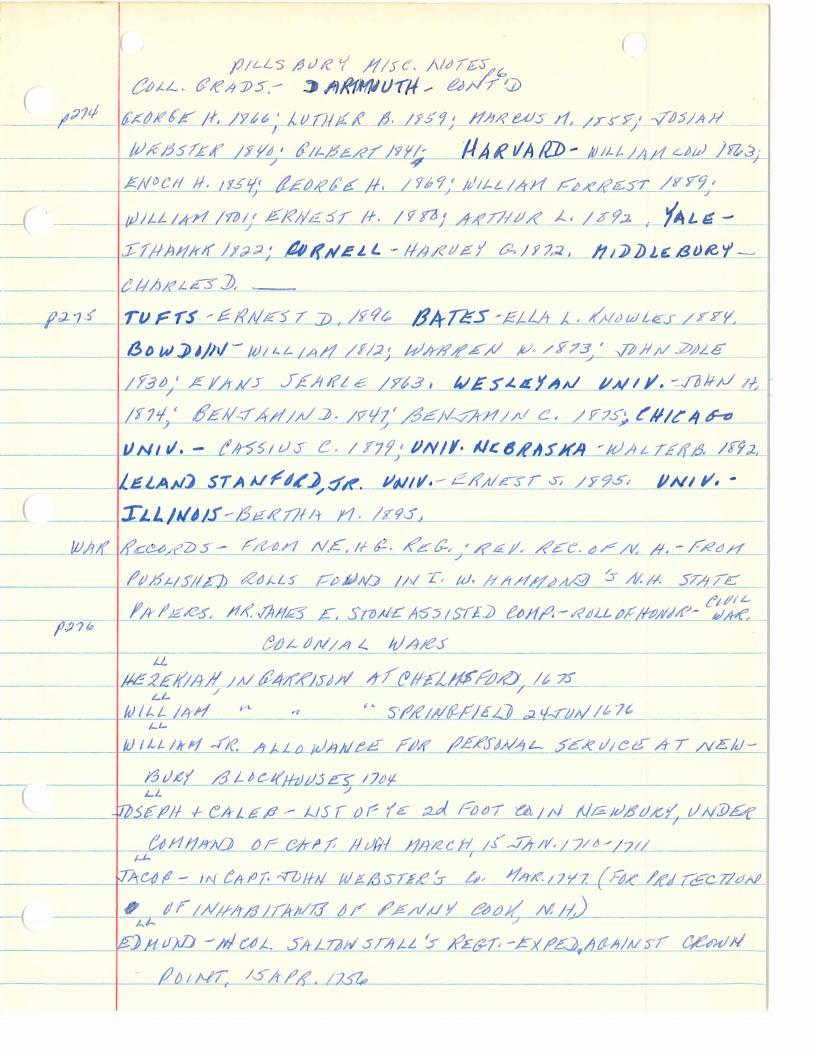 PILLSBURY MISC. NOTES p6
COLL. GRADS.- DARTMOUTH - CONT'D
p274 GEORGE H. 1866; LUTHER B. 1859; MARCUS M. 1858; JOSIAH
WEBSTER 1840; GILBERT 1841; HARVARD- WILLIAM LOW 1863;
ENOCH H. 1854; GEORGE H. 1869; WILLIAM FORREST 1889;
WILLIAM 1801; ERNEST H. 1880; ARTHUR L. 1892. YALE-
ITHAMAR 1822; CORNELL - HARVEY G. 1872. MIDDLEBURY-
CHARLES D. ____
p275 TUFTS - ERNEST D. 1896 BATES - ELLA L. KNOWLES 1884.
BOWDOIN - WILLIAM 1812; WARREN W. 1873; JOHN DOLE
1830; EVANS SEARLE 1863. WESLEYAN UNIV. - JOHN H.
1874; BENJAMIN D. 1847; BENJAMIN C. 1875; CHICAGO
UNIV. - CASSIUS C. 1879; UNIV. NEBRASKA - WALTER B. 1892.
LELAND STANFORD, JR. UNIV. - ERNEST S. 1895. UNIV. -
ILLINOIS - BERTHA M. 1895.
WAR RECORDS - FROM NE. H. G. REG.; REV. REC. OF N. H. - FROM
PUBLISHED ROLLS FOUND IN I. W. HAMMOND'S N.H. STATE
PAPERS. MR. JAMES E. STONE ASSISTED COMP. - ROLL OF HONOR - CIVIL WAR.
p276
COLONIAL WARS
LL
HEZEKIAH, IN GARRISON AT CHELMSFORD, 1675
LL
WILLIAM " " " SPRINGFIELD 24 JUN 1676
LL
WILLIAM JR. ALLOWANCE FOR PERSONAL SERVICE AT NEW-
BURY BLOCKHOUSES, 1704
LL
JOSEPH + CALEB - LIST OF YE 2d FOOT CO. IN NEWBURY, UNDER
COMMAND OF CAPT. HUGH MARCH, 15 JAN. 1710-1711
LL
JACOB - IN CAPT. JOHN WEBSTER'S Co. MAR. 1747. (FOR PROTECTION
OF INHABITANTS OF PENNY COOK, N.H.)
LL
EDMUND - COL. SALTONSTALL'S REGT. - EXPED. AGAINST CROWN
POINT, 15 APR. 1756